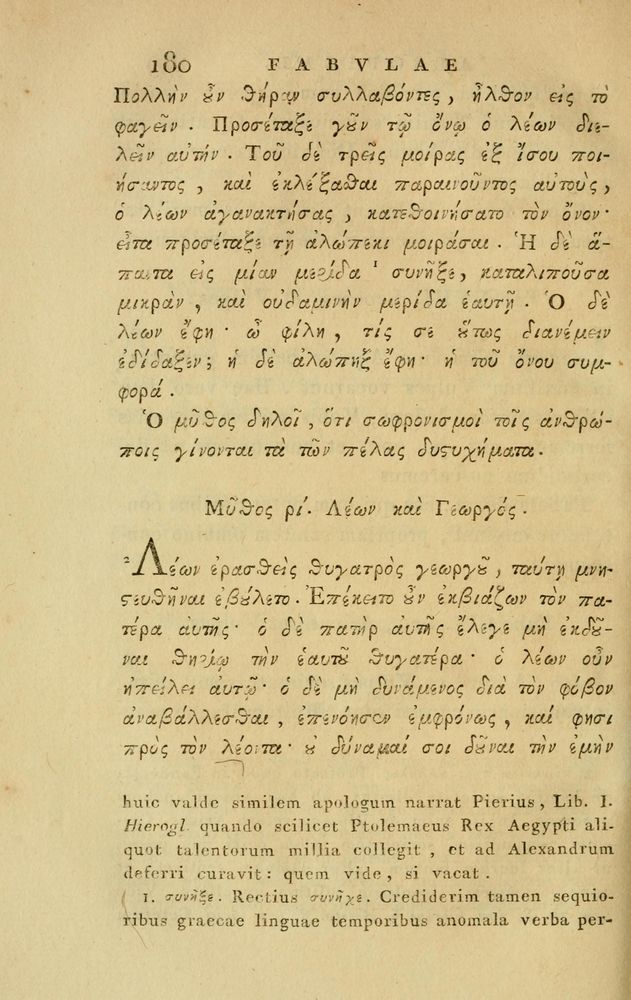 180 FABVLAE
Πολλὴν ȣ̓ν θήραν συλλαβόντες, ἦλθον εἰς τὸ
φαγεῖν. Προσέταξε γȣ͂ν τῷ ὄνῳ ὁ λέων διε-
λεῖν αὐτήν. Τοῦ δὲ τρεῖς μοίρας ἐξ ἴσου ποι-
ήσαντος, καὶ ἐκλέξαθαι παραινοῦντος αὐτοὺς,
ὁ λέων ἀγανακτήσας, κατεθοινήσατο τὸν ὄνον·
εἶτα προσέταξε τῇ ἀλώπεκι μοιράσαι. Ἡ δὲ ἅ-
παντα εἰς μίαν μερίδα ¹ συνῆξε, καταλιποῦσα
μικρὰν, καὶ ουδαμινὴν μερίδα ἑαυτῇ. Ὁ δὲ
λέων ἔφη· ὦ φίλη, τίς σε ȣ̔́τως διανέμειν
ἐδίδαξεν; ἡ δὲ ἀλώπηξ ἔφη· ἡ τοῦ ὄνου συμ-
φορά.
Ὁ μῦθος δηλοῖ, ὅτι σωφρονισμοὶ τοῖς ἀνθρώ-
ποις γίνονται τὰ τῶν πέλας δυϛυχήματα.
Μῦθος ρί. Λέων καὶ Γεωργός.
² Λέων ἐρασθεὶς θυγατρὸς γεωργȣ͂, ταύτη μνη-
ϛευθῆναι ἐβȣ́λετο. Ἐπέκειτο ȣ̓ν ἐκβιάζων τὸν πα-
τέρα αυτῆς· ὁ δὲ πατὴρ αὐτῆς ἔλεγε μὴ ἐκδȣ͂-
ναι θηρίῳ τὴν ἑαυτȣ͂ θυγατέρα· ὁ λέων οὖν
ἠπείλει αὐτῷ· ὁ δὲ μὴ δυνάμενος διὰ τὸν φόβον
ἀναβάλλεσθαι, ἐπενόησεν ἐμφρόνως, καί φησι
πρὸς τὸν λέοντα· ȣ̓ δύναμαί σοι δȣ͂ναι τὴν ἐμὴν
huic valde similem apologum narrat Pierius, Lib. I.
Hierogl. quando scilicet Ptolemaeus Rex Aegypti ali-
quot talentorum millia collegit, et ad Alexandrum
deferri curavit: quem vide, si vacat.
1. συνῆξε. Rectius συνῆχε. Crediderim tamen sequio-
ribus graecae linguae temporibus anomala verba per-